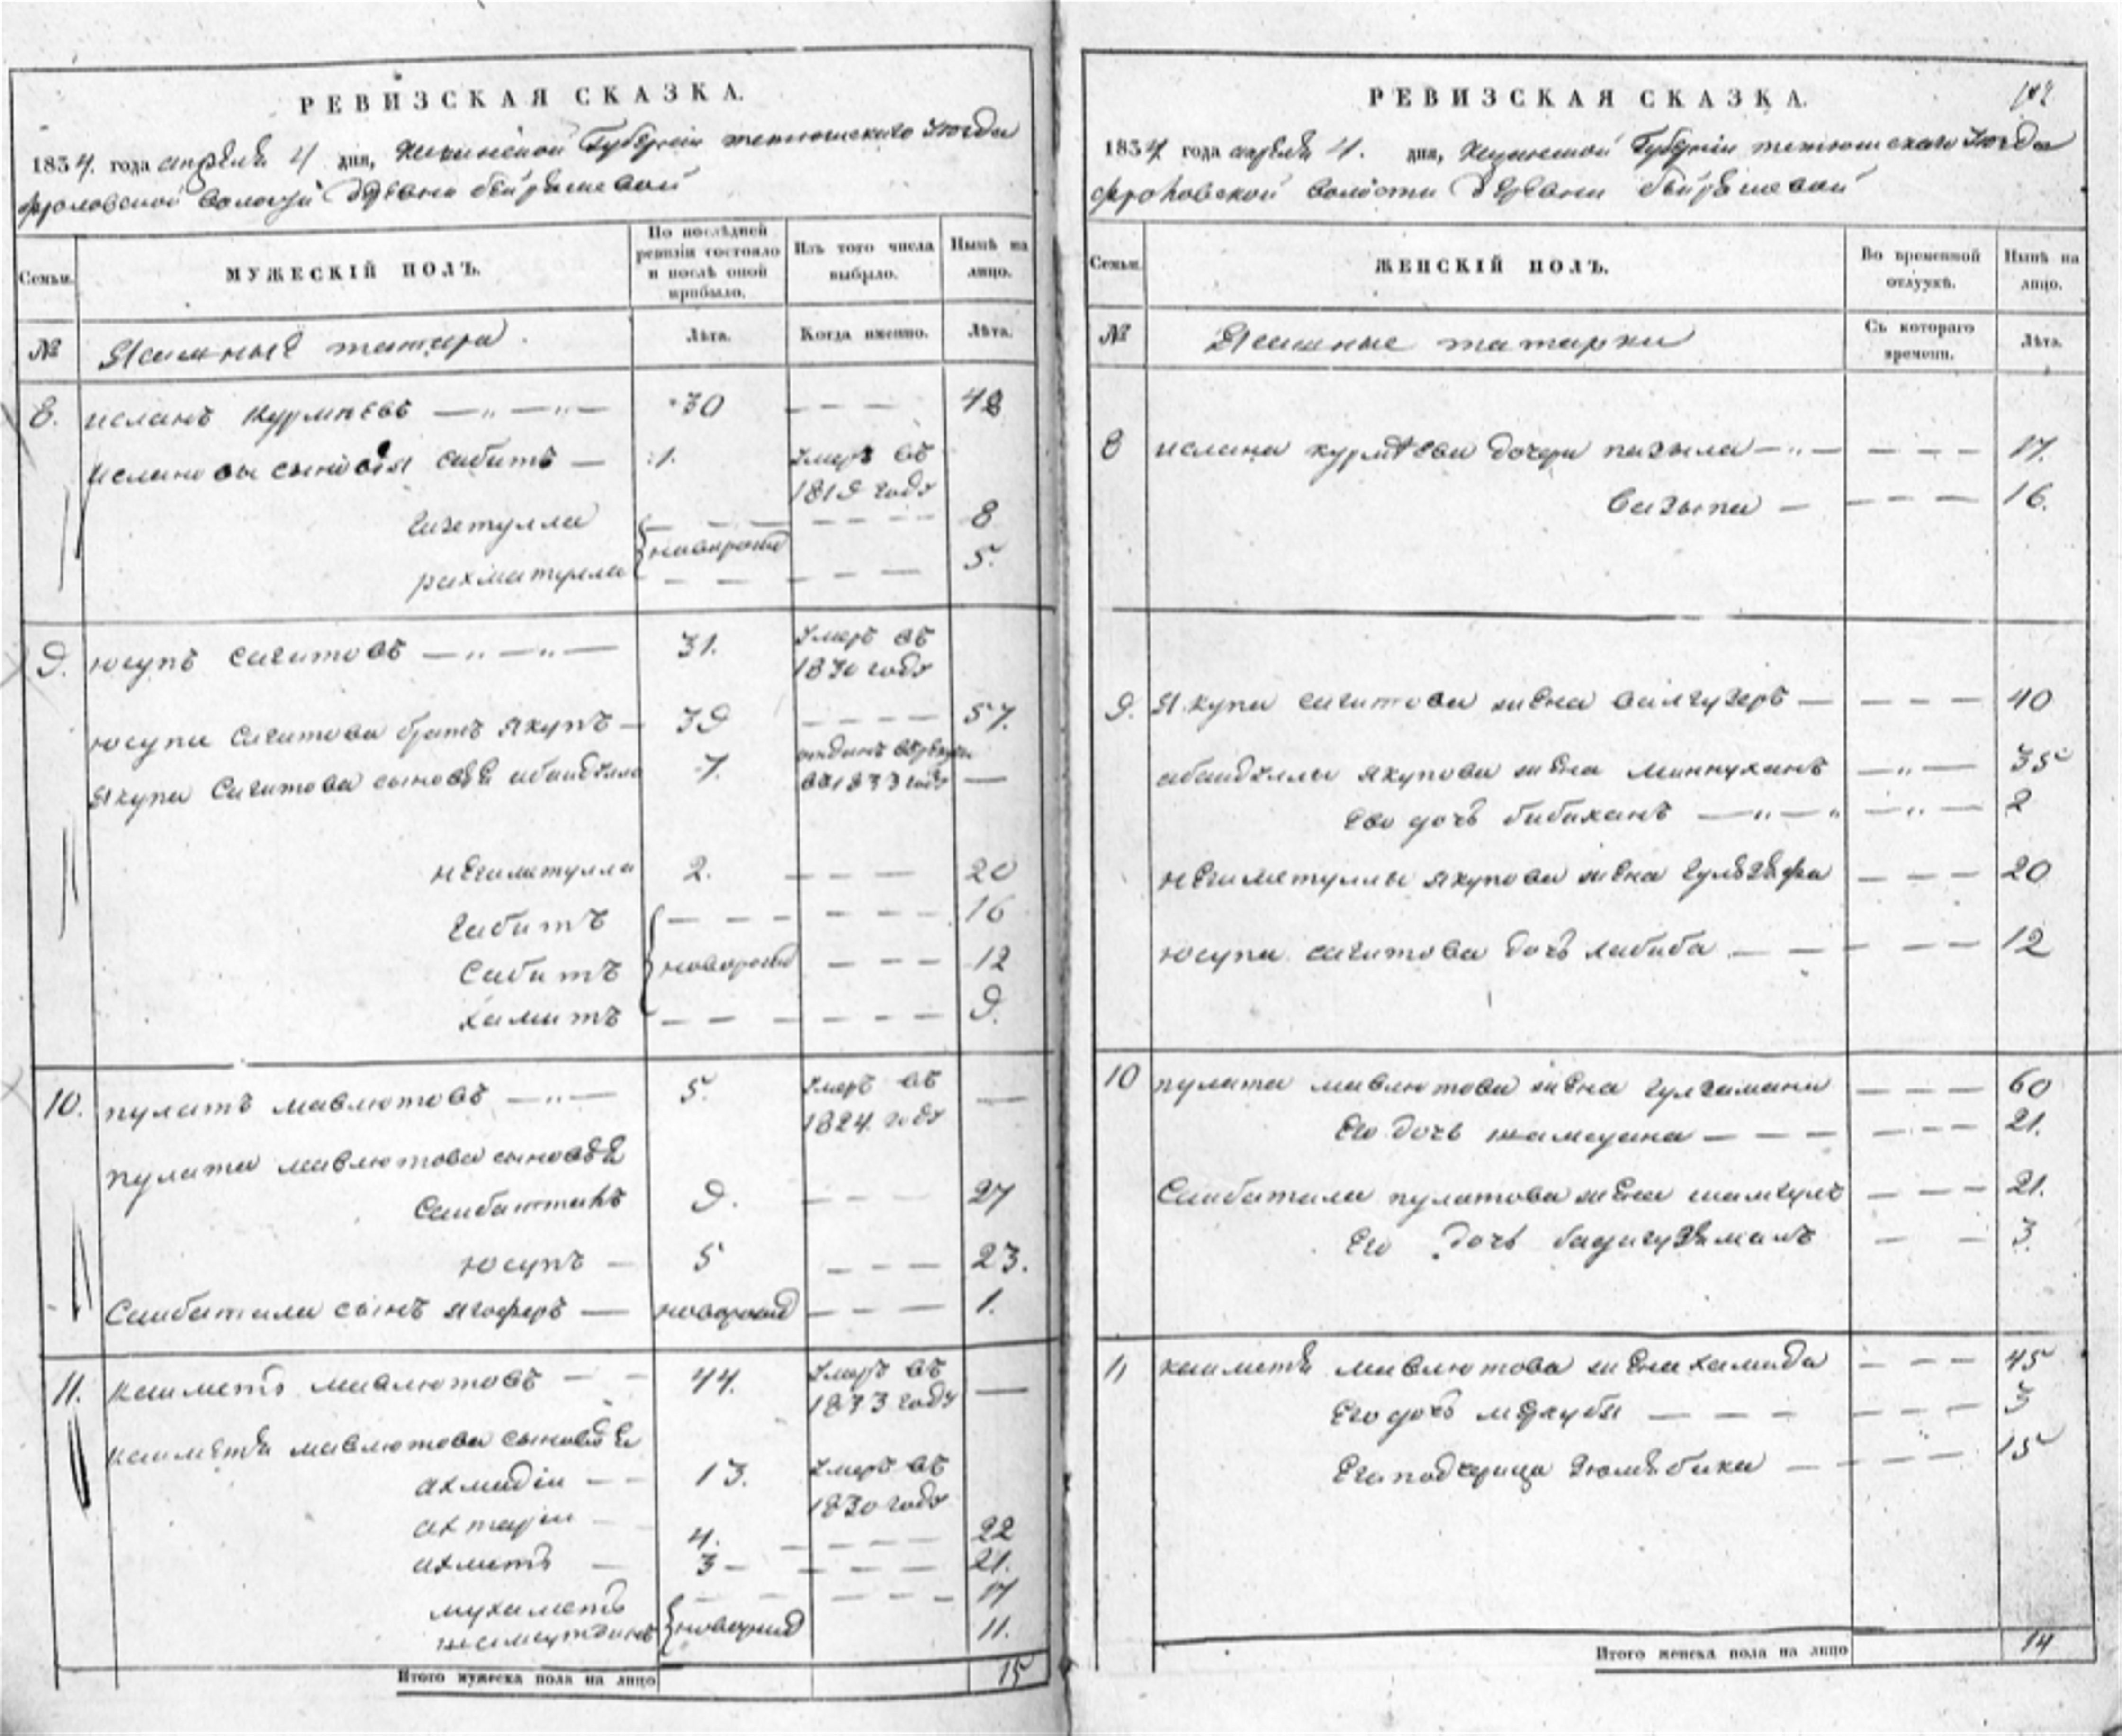 РЕВИЗСКАЯ СКАЗКА.
1834. года апреля 4 дня, Казанской Губернии тетюшскаго уезда
фроловской волости деревни бейряшевой
Семьи. МУЖЕСКІЙ ПОЛЪ. По послѣдней ревизіи состояло и послѣ оной прибыло. Изъ того числа выбыло. Нынѣ на лицо.
№ Ясашные татара. Лѣта. Когда именно. Лѣта.
8. исланъ курмѣевъ — „ — „ — 30 — — — 48
ислановы сыновья сабитъ — 1. умеръ въ
1819 году
гизетулла — — — — — — 8
{новорожд
рахматулла — — — — — 5.
9. юсупъ сагитовъ — „ — „ — 31. умеръ въ
1830 году
юсупа сагитова братъ якупъ — 39 — — — — 57.
якупа сагитова сыновья абайдулла 7. отданъ въ рекруты
въ 1833 году —
негаметулла 2. — — — 20
габитъ { — — — — — — 16
сабитъ новорожд — — — 12
хамитъ — — — — — — 9.
10. пулатъ мавлютовъ — „ — 5. умеръ въ —
1824 году
пулата мавлютова сыновья
саибатталъ 9. — — — 27
юсупъ — 5 — — — 23.
Саибатала сынъ ягоферъ — новорожд — — — 1.
11. каиметъ мавлютовъ — — 44. умеръ въ —
1833 году
каиметя мавлютова сыновья
ахмадіи — — 13. умеръ въ
1830 году
ахтари — 4. — — — — 22
ахметъ — 3 — — — — — 21.
мухаметъ { — — — — — — 17
новорожд 11.
Итого мужеска пола на лицо 15
РЕВИЗСКАЯ СКАЗКА.
1834. года апреля 4. дня, Казанской Губерніи тетюшскаго уезда
фроловской волости деревни бейряшевой
Семьи. ЖЕНСКІЙ ПОЛЪ. Во временной отлучкѣ. Нынѣ на лицо.
№ Ясашные татарки Съ котораго времени. Лѣта.
8 ислана курмѣева дочери пазыла — „ — — — — 17.
вазыпа — — — — 16.
9. Якупа сагитова жена валгузеръ — — — — 40
абайдуллы якупова жена миннуханъ — „ — 35
Его дочь бибиханъ — „ — „ — „ — 2
негаметуллы якупова жена гульзяфа — — — 20
юсупа сагитова дочь хабиба — — — — — 12
10 пулата мавлютова жена гулзамана — — — 60
Его дочь — — — — — — 21.
Саибатала пулатова жена шамгулъ — — — 21.
Его дочь бадигузямалъ — — 3.
11 каиметя мавлютова жена хамида — — — 45
Его дочь — — — — — — 3
Его подчерица зюлябика — — — — 15
Итого женска пола на лицо 14